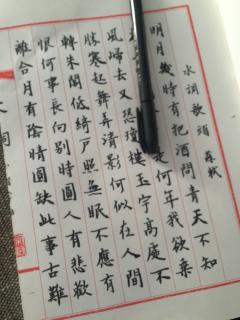 水調歌頭 蘇軾
明月幾時有把酒問青天不知
是何年我欲乘
風歸去又恐瓊樓玉宇高處不
勝寒起舞弄清影何似在人間
轉朱閣低綺戶照無眠不應有
恨何事長向別時圓人有悲歡
離合月有陰晴圓缺此事古難